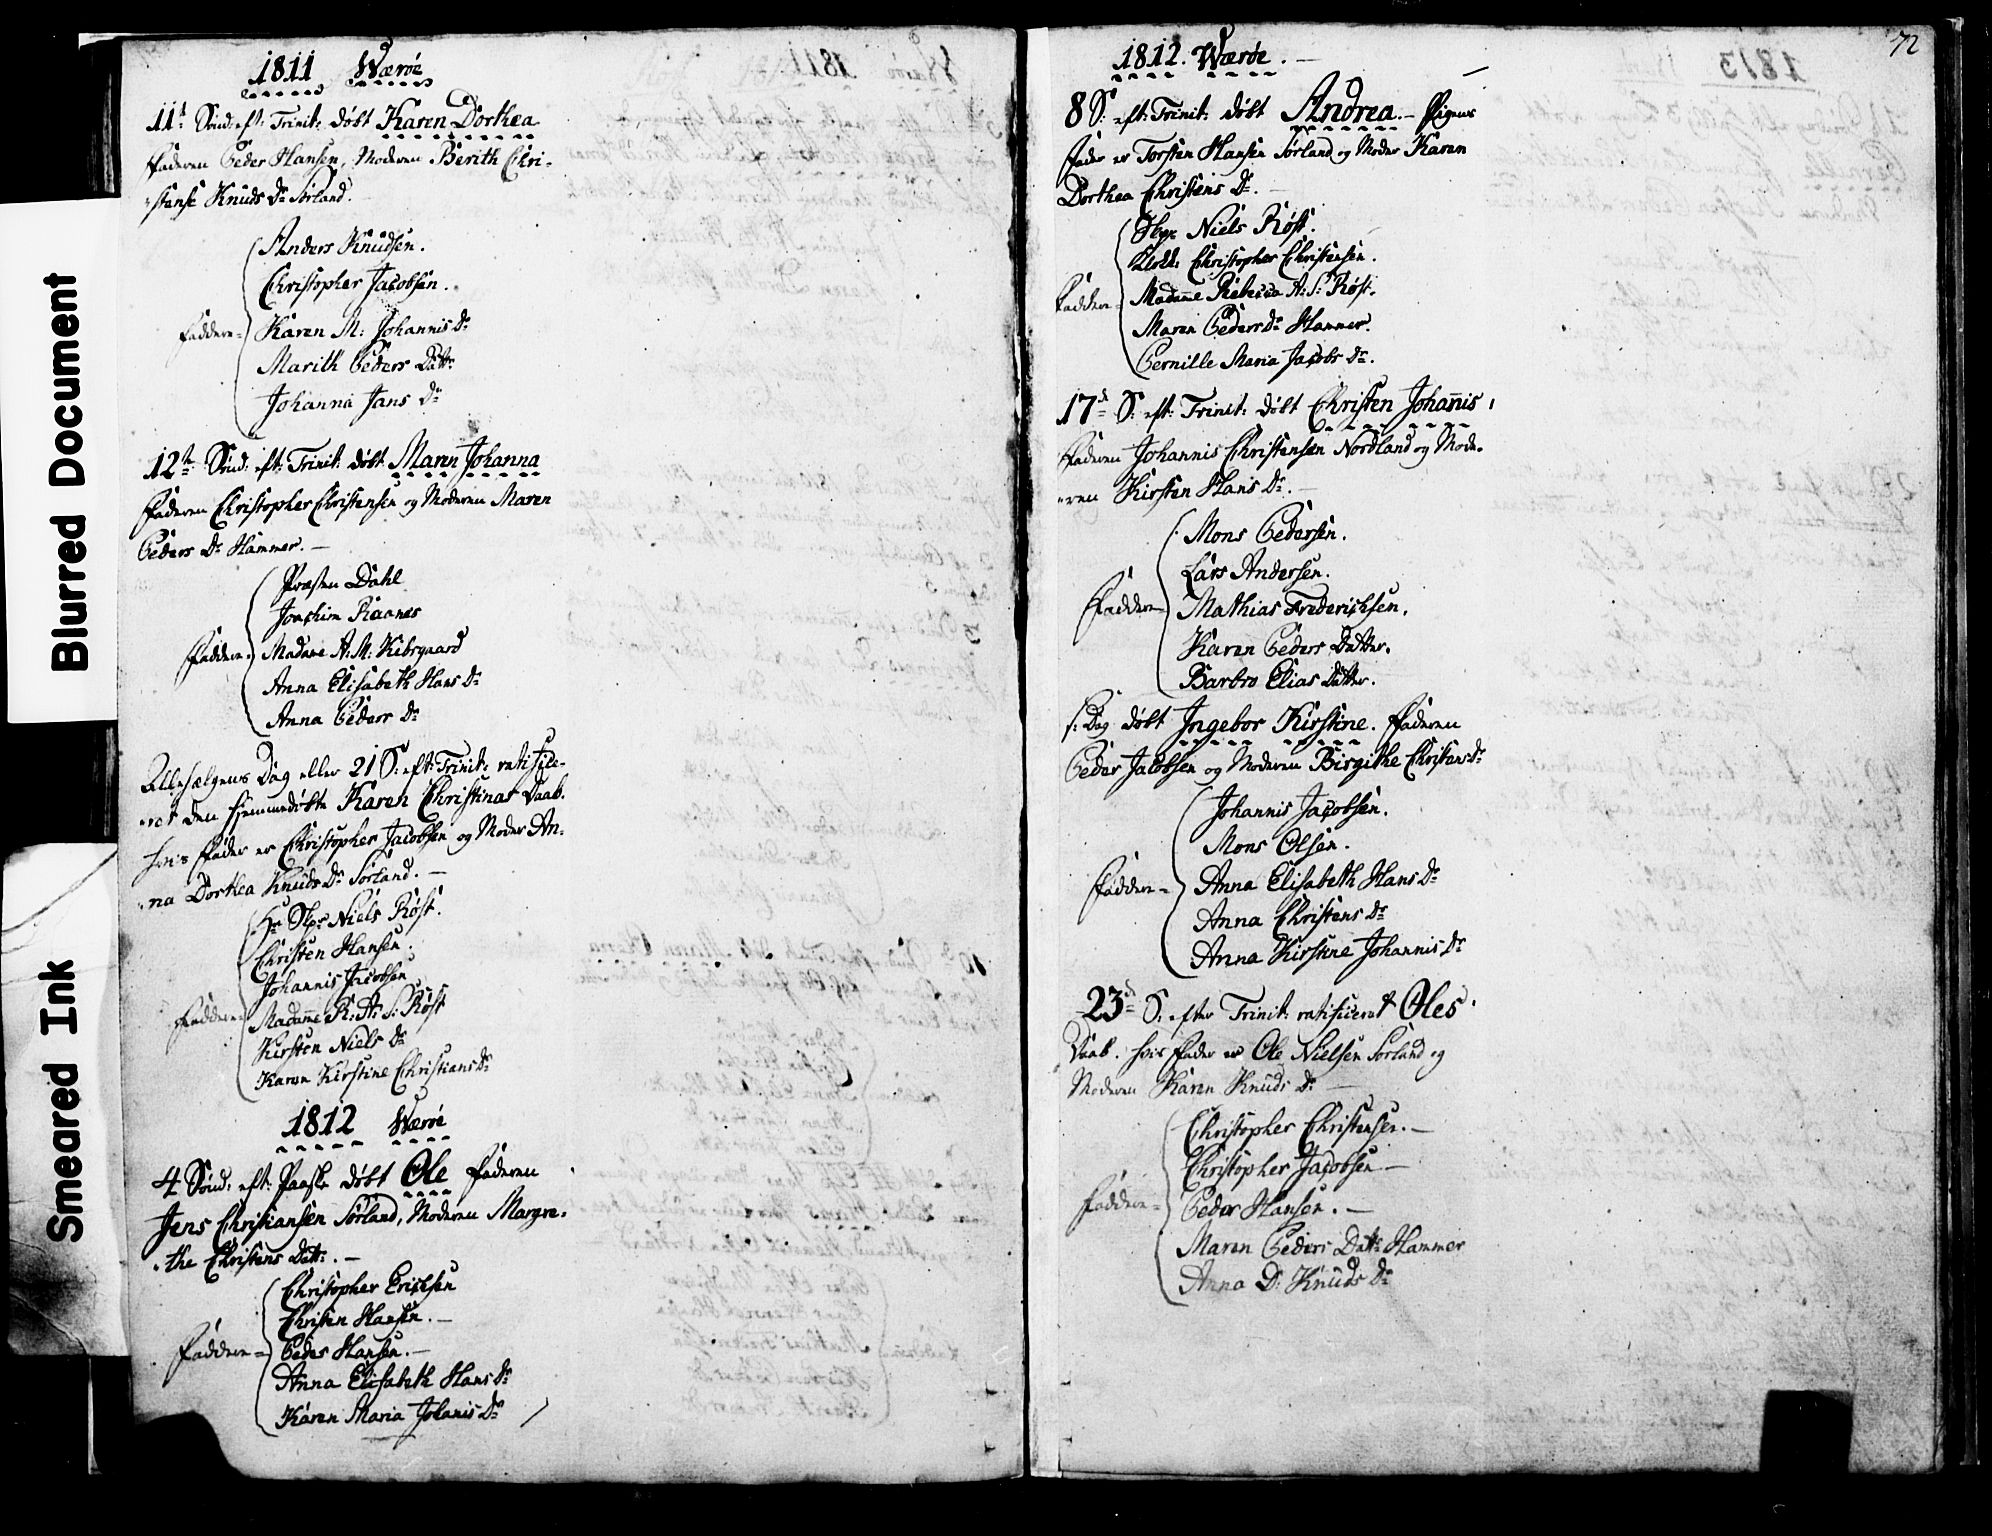 Blurred Document
Smeared Ink
1811 Wærøe
11te Sønd: eft: Trinit: døbt Karen Dorthea
Faderen Peder Hansen, Moderen Berith Chri-
-stense Knuds Dr Sørland.
Anders Knudsen.
Christopher Jacobsen.
Faddere = Karen M: Johannis Dr
Marith Peders Dattr
Johanna Jans Dr
12te Sønd: eft: Trinit: døbt Maren Johanna
Faderen Christopher Christensen og Moderen Maren
Peders Dr Hammer. —
Præsten Dahl
Joachim Raanes
Faddere. Madame A: M: Kibsgaard
Anna Elisabeth Hans Dr
Anna Peders Dr
Allehælgens Dag eller 21 S: eft: Trinit: ratifice-
-ret den hjemmedøbte Karen Christinas Daab.
hvis Fader er Christopher Jacobsen og Moder An-
-na Dorthea Knuds Dr Sørland. —
Hr Niels Røst.
Christen Hansen.
Johannis Jacobsen
Faddere Madame R: A: S: Røst
Kirsten Niels Dr
Karen Kirstine Christians Dr
1812 Wærøe
4 Sønd: eft: Paaske døbt Ole Faderen
Jens Christiansen Sørland, Moderen Margre-
-the Christens Dattr. —
Christopher Erichsen
Christen Hansen. —
Faddere = Peder Hansen. —
Anna Elisabeth Hans Dr
Karen Maria Johanis Dr
72
1812. Wærøe. —
8 S: eft: Trinit: døbt Andrea. — Pigens
Fader er Torsten Hansen Sørland og Moder Karen
Dorthea Christens Dr. —
Niels Røst.
Klokk: Christopher Christensen.
Faddere = Madame Rebecca A: S: Røst.
Maren Peders Dr Hammer.
Pernille Maria Jacobs Dr.
17de S: eft: Trinit: døbt Christen Johannis,
Faderen Johannis Christensen Nordland og Mode-
-ren Kirsten Hans Dr. —
Mons Pedersen.
Lars Andersen.
Faddere = Mathias Frederichsen.
Karen Peders Datter.
Barbro Elias Datter.
s: Dag døbt Ingebor Kirstine. Faderen
Peder Jacobsen og Moderen Birgithe Christens Dr
Johannis Jacobsen.
Mons Olsen.
Faddere = Anna Elisabeth Hans Dr
Anna Christens Dr
Anna Kirstine Johannis Dr
23de S: efter Trinit: ratificeret Oles
Daab. hvis Fader er Ole Nielsen Sørland og
Moderen Karen Knuds Dr —
Christopher Christensen. —
Christopher Jacobsen —
Faddere = Peder Hansen. —
Maren Peders Dattr Hammer
Anna D: Knuds Dr